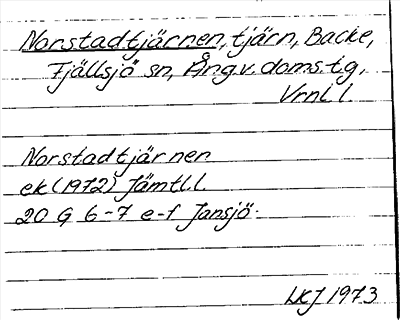 Norstadtjärnen, tjärn, Backe,
Fjällsjö sn, Ång.v. doms.tg,
Vrnl l.
Norstadtjärnen
ek (1972) Jämtl.l.
20 G 6-7 e-f Jansjö.
LKJ 1973